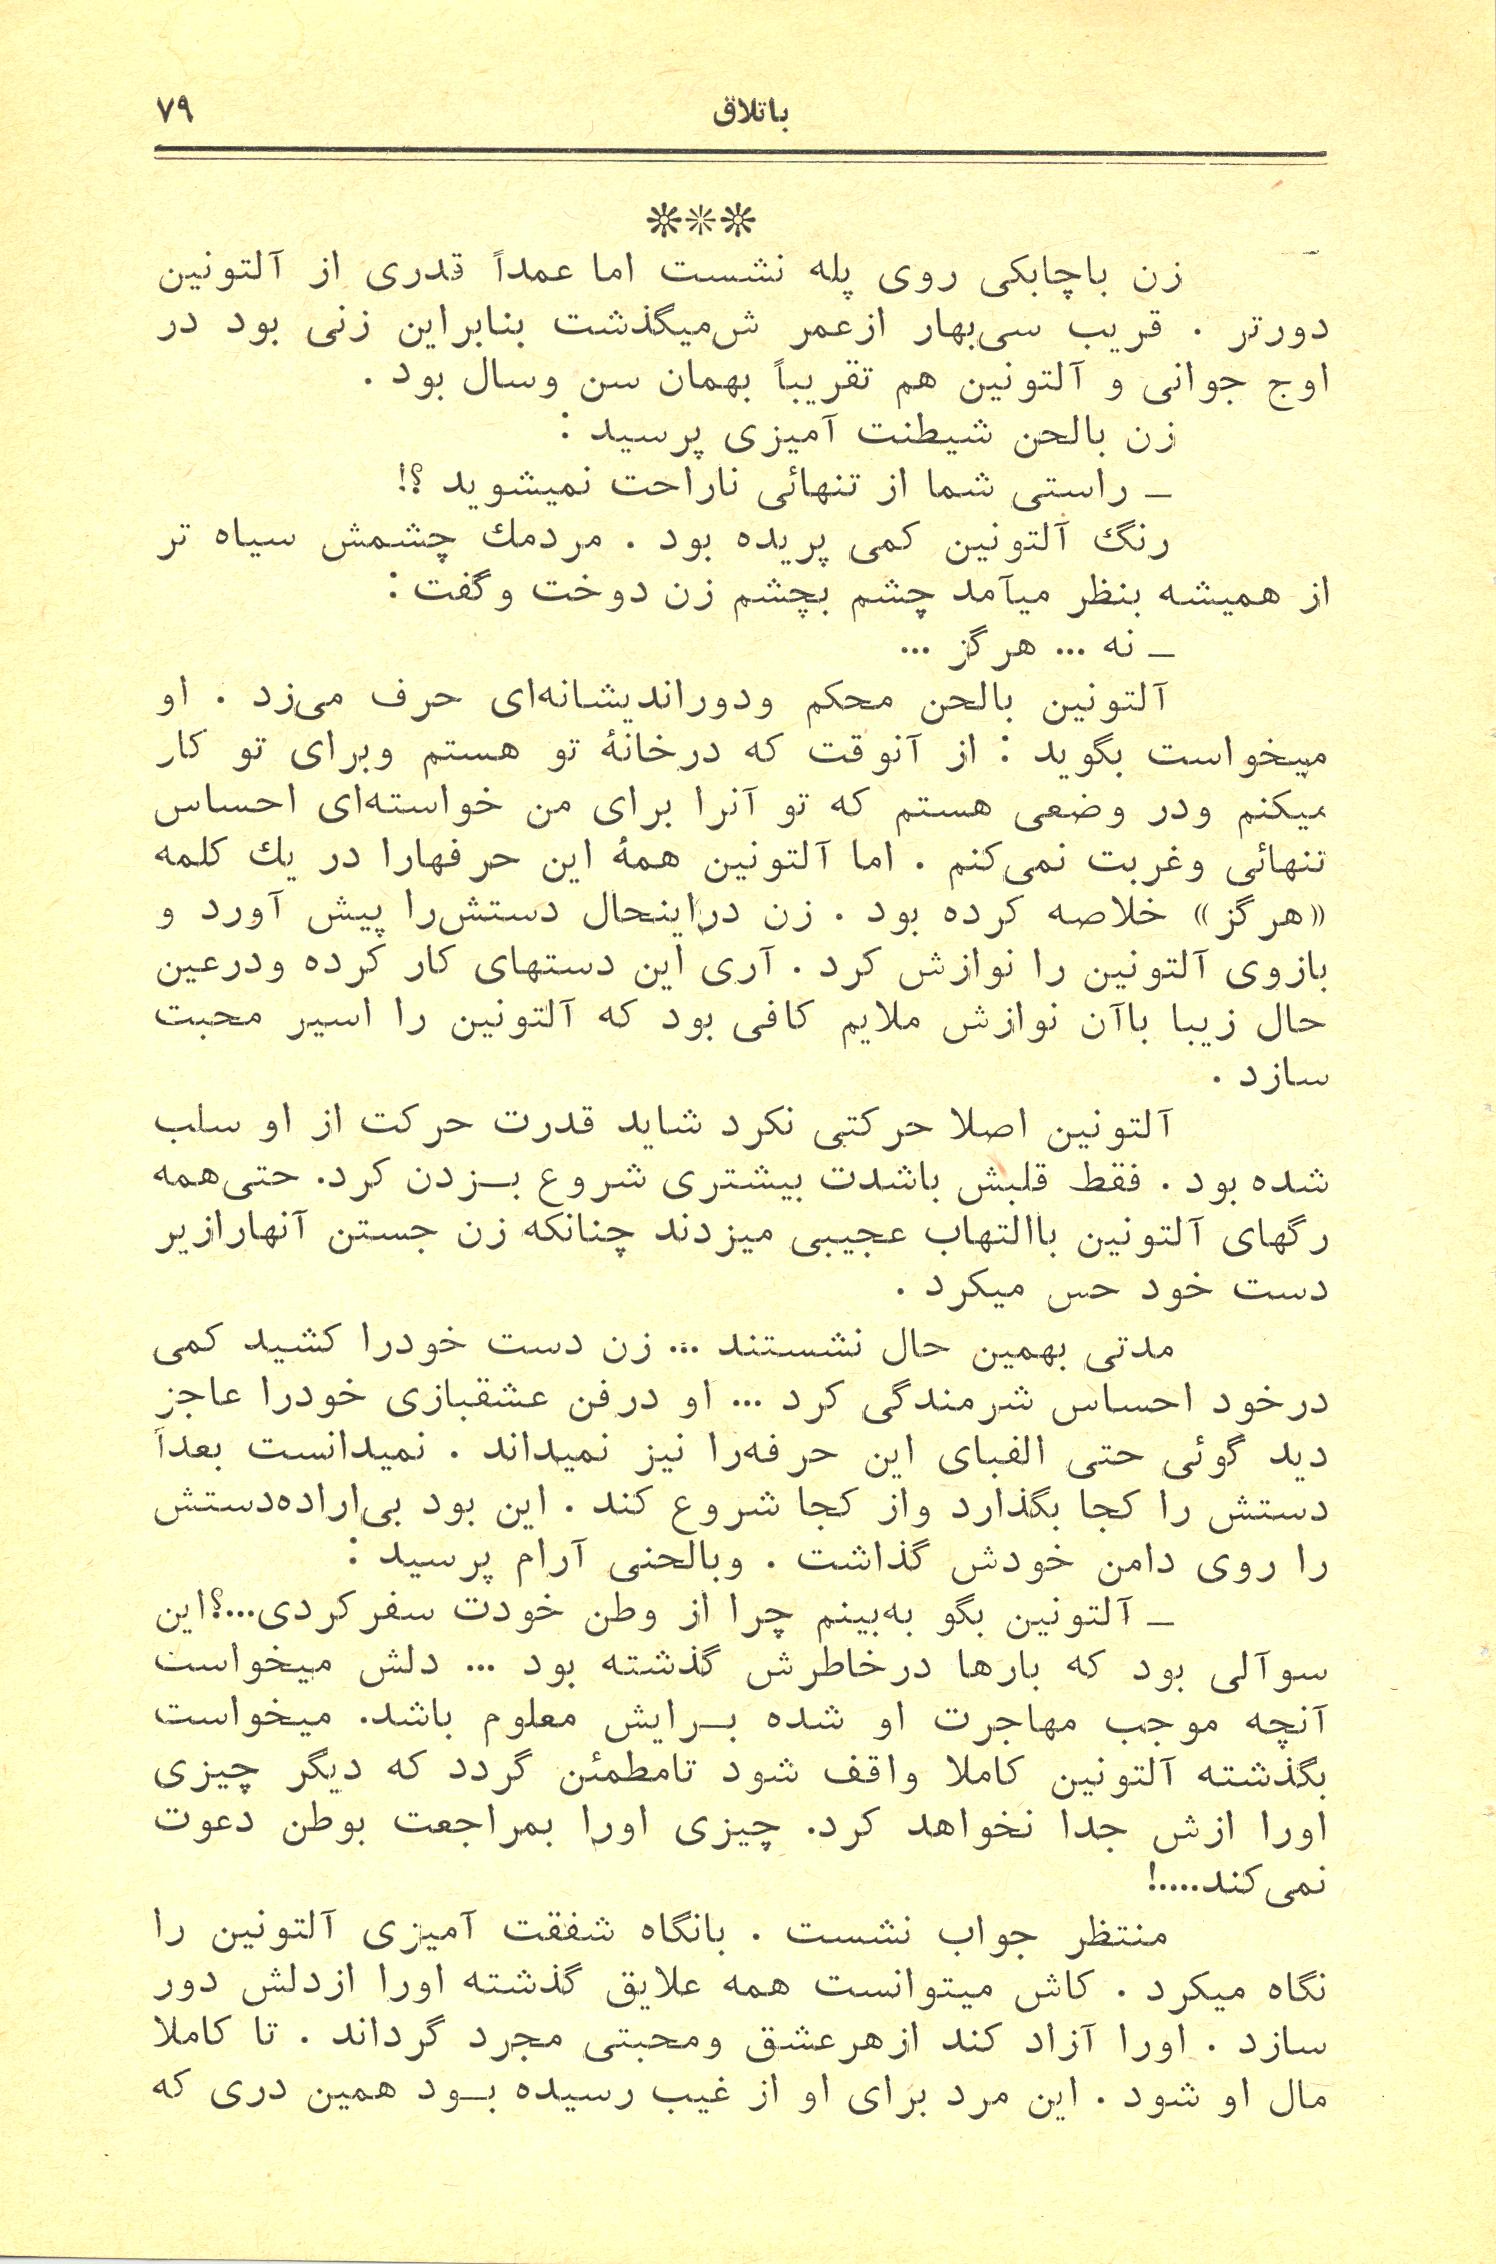 باتلاق ۷۹
***
زن باچابکی روی پله نشست اما عمداً قدری از آلتونین
دورتر . قریب سی‌بهار ازعمر ش‌میگذشت بنابراین زنی بود در
اوج جوانی و آلتونین هم تقریباً بهمان سن وسال بود .
زن بالحن شیطنت آمیزی پرسید :
ـ راستی شما از تنهائی ناراحت نمیشوید ؟!
رنگ آلتونین کمی پریده بود . مردمك چشمش سیاه تر
از همیشه بنظر میآمد چشم بچشم زن دوخت وگفت :
ـ نه ... هرگز ...
آلتونین بالحن محکم ودوراندیشانه‌ای حرف می‌زد . او
میخواست بگوید : از آنوقت که درخانهٔ تو هستم وبرای تو کار
میکنم ودر وضعی هستم که تو آنرا برای من خواسته‌ای احساس
تنهائی وغربت نمی‌کنم . اما آلتونین همهٔ این حرفهارا در یك کلمه
«هرگز» خلاصه کرده بود . زن دراینحال دستش‌را پیش آورد و
بازوی آلتونین را نوازش کرد . آری این دستهای کار کرده ودرعین
حال زیبا باآن نوازش ملایم کافی بود که آلتونین را اسیر محبت
سازد .
آلتونین اصلا حرکتی نکرد شاید قدرت حرکت از او سلب
شده بود . فقط قلبش باشدت بیشتری شروع بـزدن کرد. حتی‌همه
رگهای آلتونین باالتهاب عجیبی میزدند چنانکه زن جستن آنهارازیر
دست خود حس میکرد .
مدتی بهمین حال نشستند ... زن دست خودرا کشید کمی
درخود احساس شرمندگی کرد ... او درفن عشقبازی خودرا عاجز
دید گوئی حتی الفبای این حرفه‌را نیز نمیداند . نمیدانست بعداً
دستش را کجا بگذارد واز کجا شروع کند . این بود بی‌اراده‌دستش
را روی دامن خودش گذاشت . وبالحنی آرام پرسید :
ـ آلتونین بگو به‌بینم چرا از وطن خودت سفرکردی...؟این
سوآلی بود که بارها درخاطرش گذشته بود ... دلش میخواست
آنچه موجب مهاجرت او شده بـرایش معلوم باشد. میخواست
بگذشته آلتونین کاملا واقف شود تامطمئن گردد که دیگر چیزی
اورا ازش جدا نخواهد کرد. چیزی اورا بمراجعت بوطن دعوت
نمی‌کند.....!
منتظر جواب نشست . بانگاه شفقت آمیزی آلتونین را
نگاه میکرد . کاش میتوانست همه علایق گذشته اورا ازدلش دور
سازد . اورا آزاد کند ازهرعشق ومحبتی مجرد گرداند . تا کاملا
مال او شود . این مرد برای او از غیب رسیده بـود همین دری که